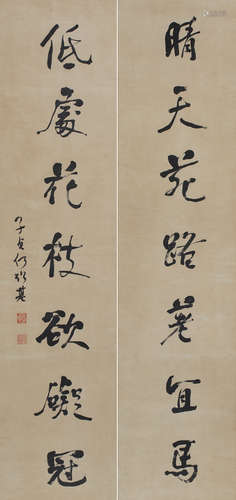 晴天苑路宜馬
低處花枝欲礙冠
子貞何紹基